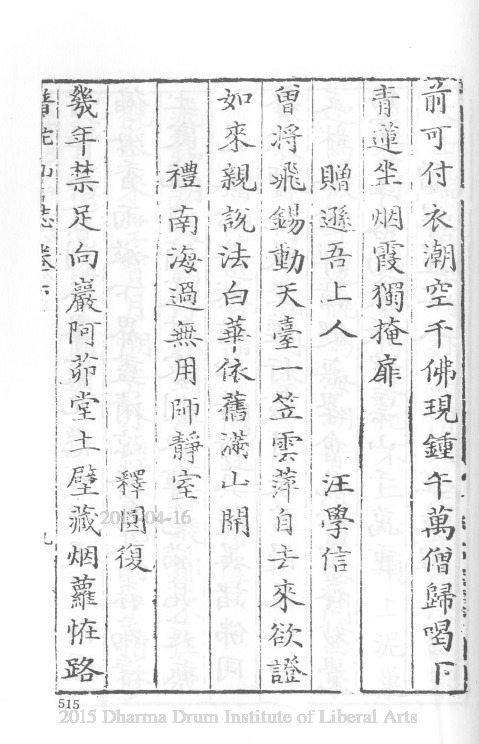 前可付衣潮空千佛現鍾午萬僧歸喝下
青蓮坐烟霞獨掩扉
贈遜吾上人 汪學信
曾將飛錫動天臺一笠雲萍自去來欲證
如來親說法白華依舊滿山開
禮南海過無用師靜室
釋圓復
幾年禁足向巖阿茆堂土壁藏烟蘿恠路
普陀山志卷六
九
515
2015-04-16
2015 Dharma Drum Institute of Liberal Arts